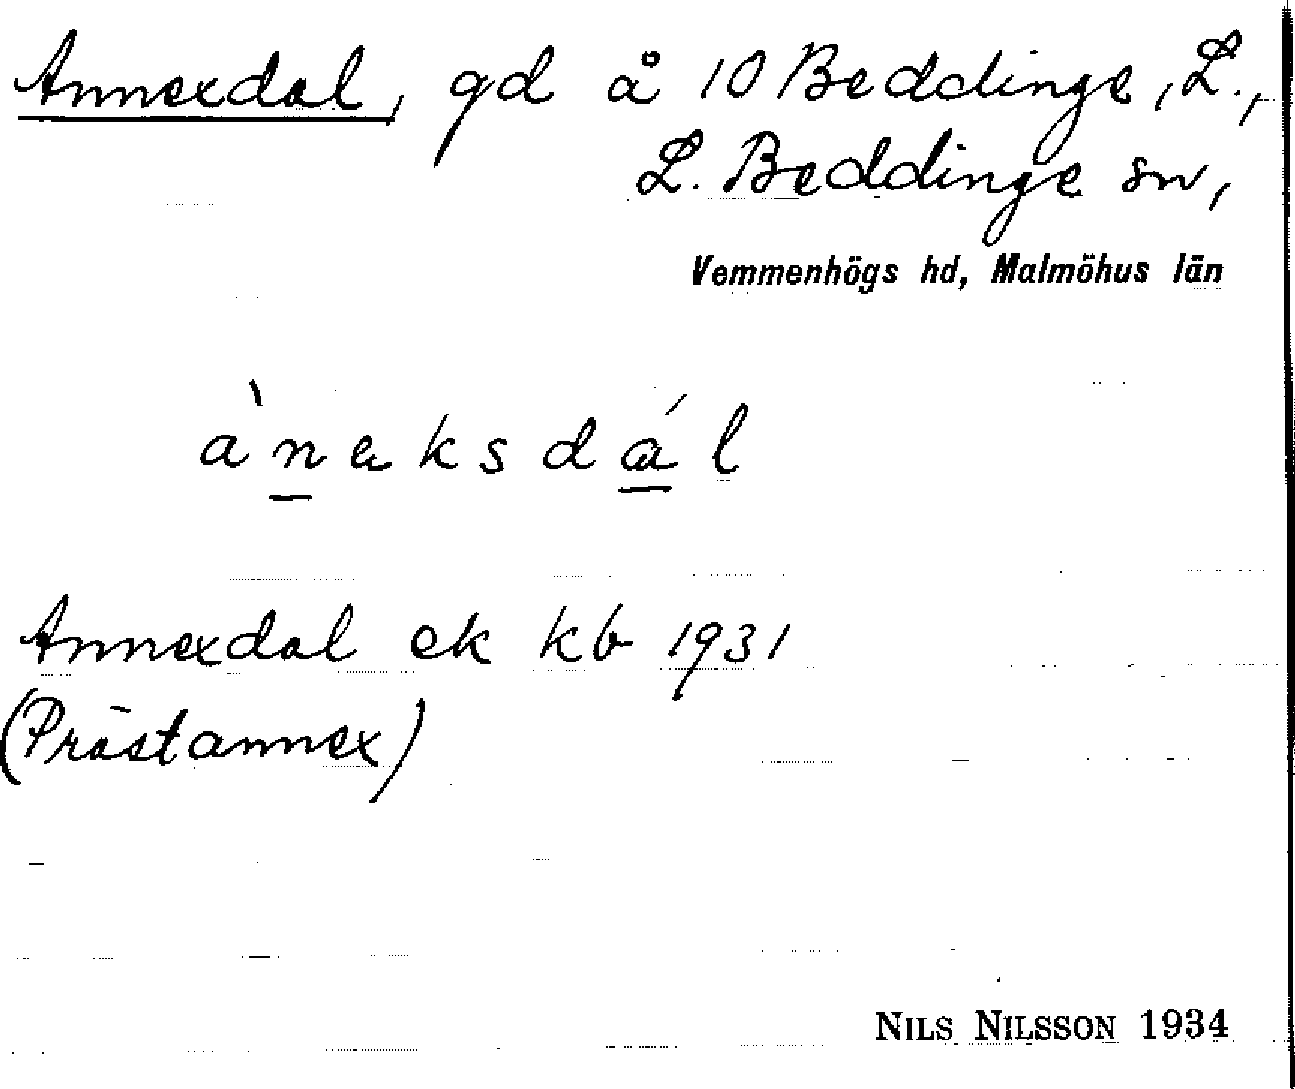 Annexdal, gd å 10 Beddinge, L.,
L. Beddinge sn,
Vemmenhögs hd, Malmöhus län
àneksdál
Annexdal ek kb 1931
(Prästannex)
NILS NILSSON 1934